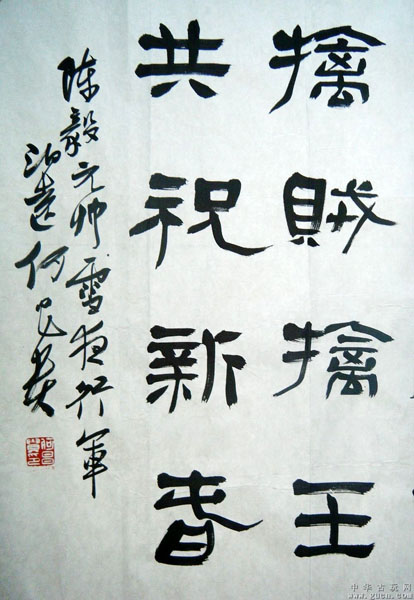 擒賊擒王
共祝新春
陈毅元帅雪夜行軍
何昌贵
中华古玩网
www.gucn.com